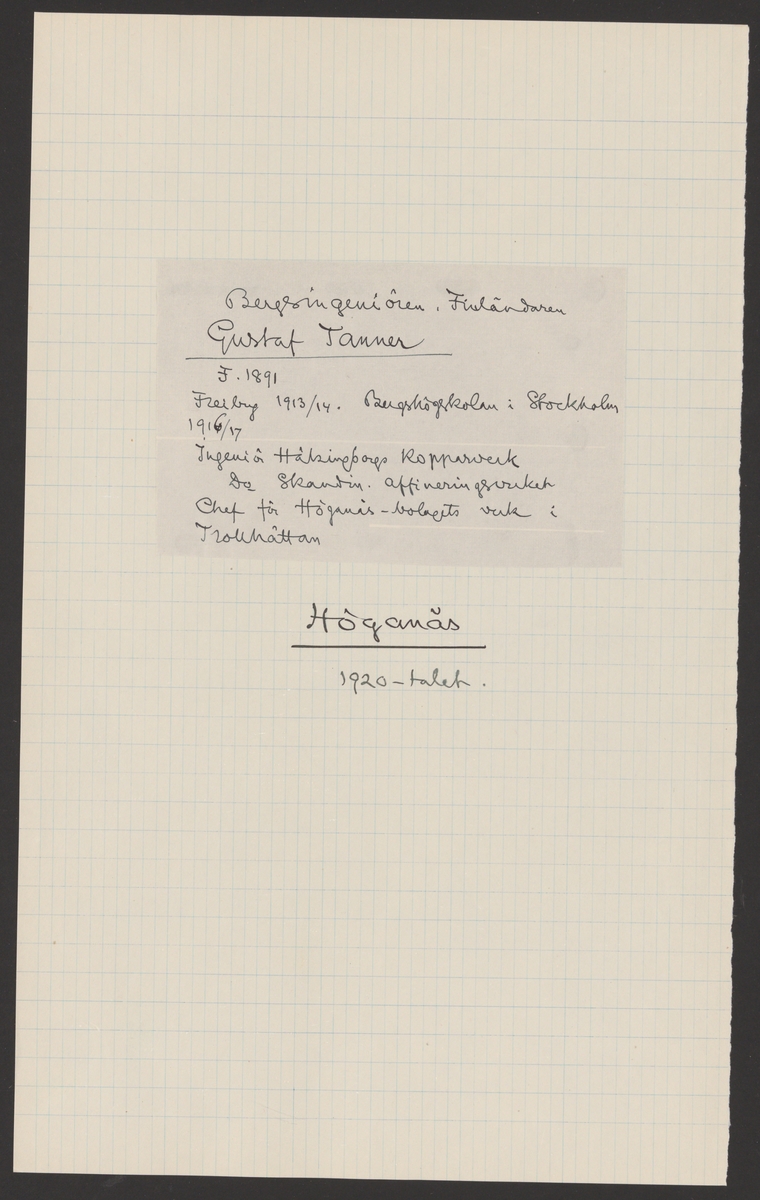 Bergsingeniören. Finländaren
Gustaf Tanner
F. 1891
Freiberg 1913/14. Bergshögskolan i Stockholm
1916/17
Ingeniör Hälsingborgs Kopparverk
Do Skandin. Affineringsverket
Chef för Höganäs-bolagets verk i
Trollhättan
Höganäs
1920-talet.